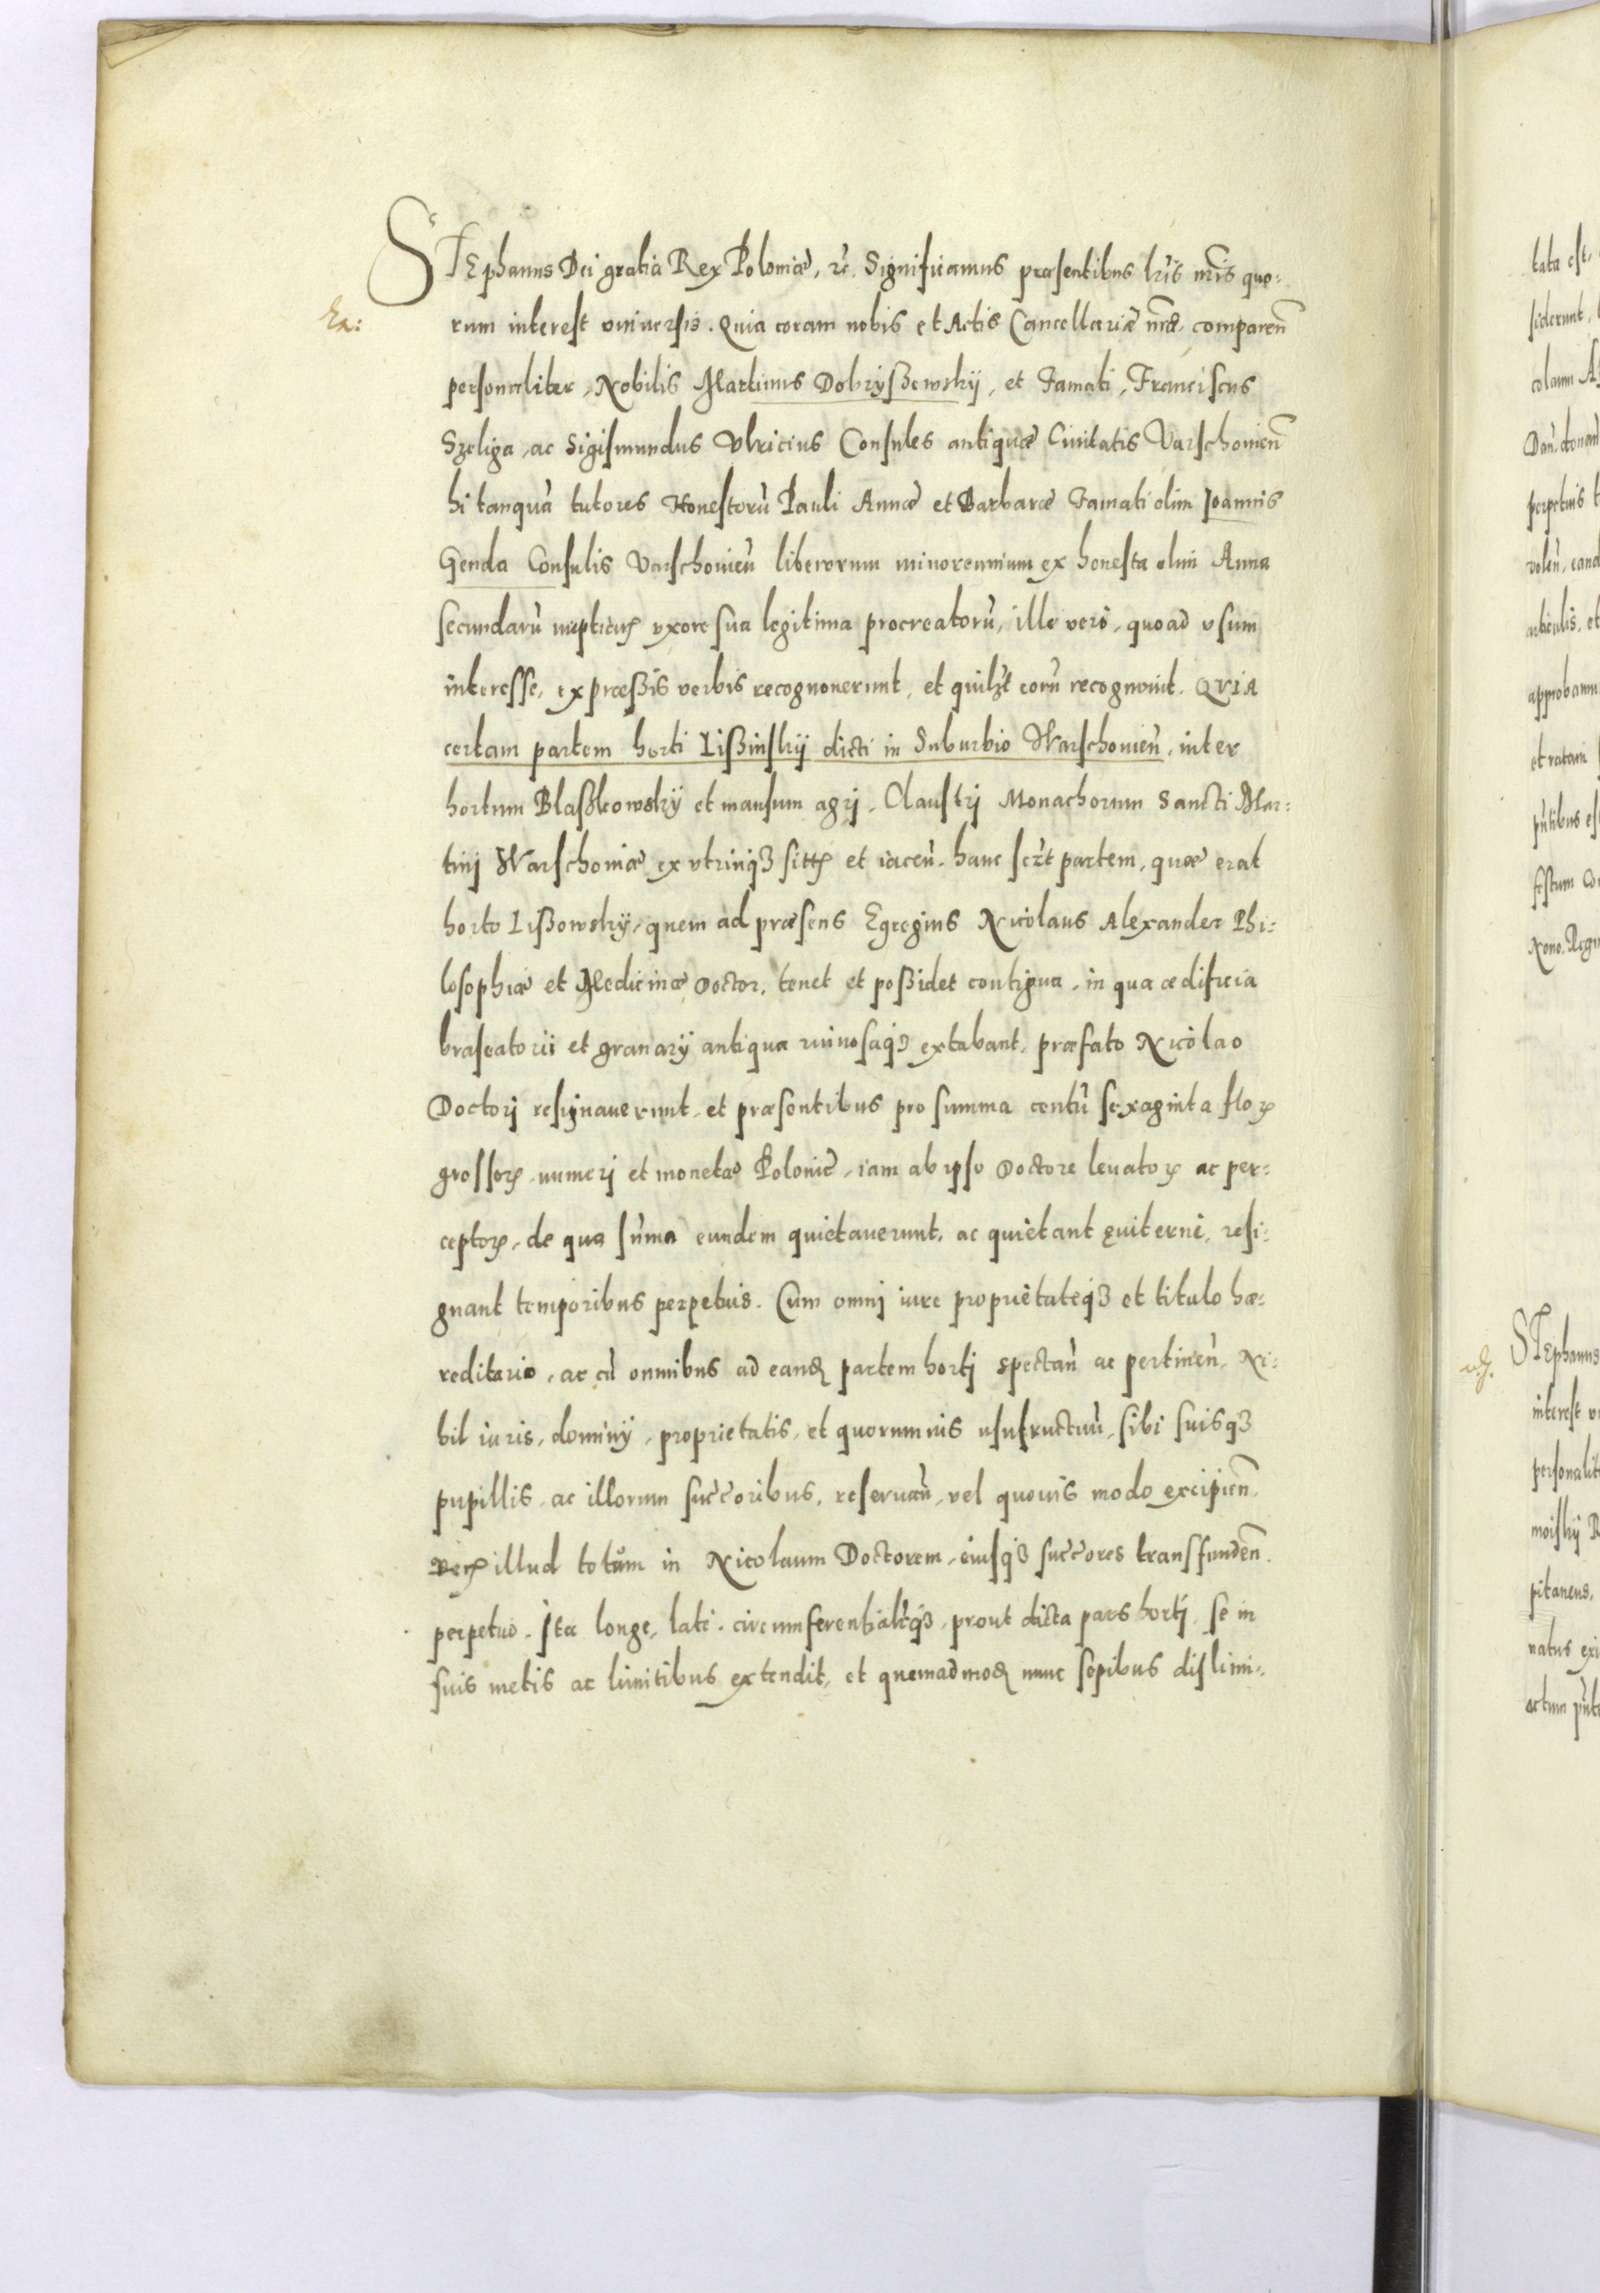 STEphanus Dei gratia Rex Poloniæ, rc. Significamus præsentibus lris nris quo-
rum interest vniuersis. Quia coram nobis et Actis Cancellariæ nræ, comparen
personaliter, Nobilis Martinus Dobryßewskij, et Famati, Franciscus
Szeliga, ac Sigismundus Vlricius Consules antiquæ Ciuitatis Varschouien
hi tanquā tutores Honestorū Pauli Annæ et Barbaræ Famati olim Joannis
Genda Consulis Varschouien̄ liberorum minorennium ex honesta olim Anna
secundarū nuptiarꝝ vxore sua legitima procreatorū, ille verò, quoad vsum
interesse, expræßis verbis recognouerunt, et quilꝫt eorū recognouit. QVIA
certam partem horti Lißinskij dicti in Suburbio Warschouien̄, inter
hortum Blaßkowskij et mansum agrj, Claustrj Monachorum Sancti Mar-
tinj Warschouiæ ex vtrinqꝫ sittꝝ et iacen̄, hanc sczt partem, quæ erat
horto Lißowskij, quem ad præsens Egregius Nicolaus Alexander Phi-
losophiæ et Medicinæ Doctor, tenet et poßidet contigua, in qua ædificia
braseatorii et granarij antiqua ruinosaqꝫ extabant, præfato Nicòlao
Doctorj resignauerunt, et præsentibus pro summa centū sexaginta floꝝ
grossorꝝ, numerj et monetæ Polonicæ, iam ab ipso Doctore leuatoꝝ ac per-
ceptorꝝ, de qua sūma eundem quietauerunt, ac quietant ęuiternè, resi-
gnant temporibus perpetuis. Cum omnj iure proprietateqꝫ et titulo hæ-
reditario, ac cū omnibus ad eandꝫ partem hortj spectan̄ ac pertinen̄, Ni-
hil iuris, dominij, proprietatis, et quorumuis usufructuū, sibi suisqꝫ
pupillis, ac illorum succoribus, reseruan̄, vel quouis modo excipien̄,
Verꝝ illud totum in Nicolaum Doctorem, eiusqꝫ succores transfunden̄.
perpetuo. Ita longe, latè, circumferentialrqꝫ, prout dicta pars hortj, se in
suis metis ac limitibus extendit, et quemadmodꝫ nunc sepibus dislimi-